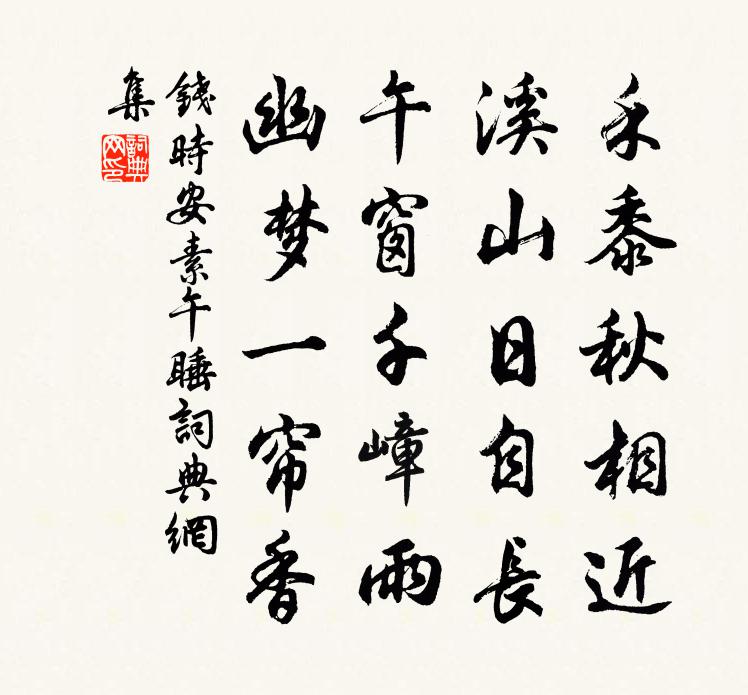 禾黍秋相近
溪山日自長
午窗千嶂雨
幽梦一帘香
錢時安素午睡詞典網
集
詞典
网印